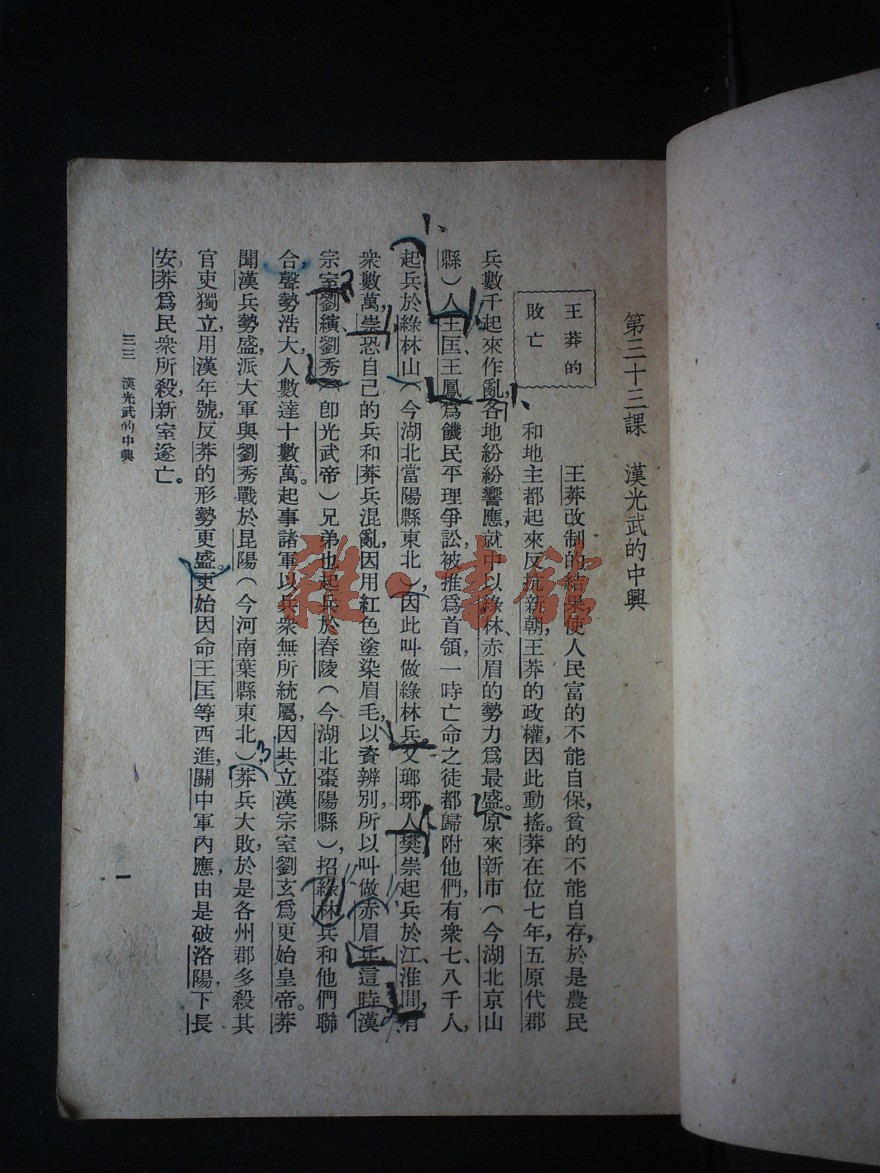 第三十三課　漢光武的中興
王莽的
敗亡
王莽改制的結果，使人民富的不能自保，貧的不能自存，於是農民
和地主都起來反抗新朝，王莽的政權，因此動搖。莽在位七年，五原代郡
兵數千起來作亂，各地紛紛響應，就中以綠林、赤眉的勢力爲最盛。原來新市（今湖北京山
縣）人王匡、王鳳爲饑民平理爭訟，被推爲首領，一時亡命之徒都歸附他們，有衆七、八千人，
起兵於綠林山（今湖北當陽縣東北），因此叫做綠林兵。又瑯琊人樊崇起兵於江、淮間，有
衆數萬，崇恐自己的兵和莽兵混亂，因用紅色塗染眉毛，以資辨別，所以叫做赤眉兵。這時漢
宗室劉縯、劉秀（卽光武帝）兄弟也起兵於舂陵（今湖北棗陽縣），招綠林兵和他們聯
合，聲勢浩大，人數達十數萬。起事諸軍以兵衆無所統屬，因共立漢宗室劉玄爲更始皇帝。莽
聞漢兵勢盛，派大軍與劉秀戰於昆陽（今河南葉縣東北），莽兵大敗，於是各州郡多殺其
官吏獨立，用漢年號，反莽的形勢更盛。更始因命王匡等西進，關中軍內應，由是破洛陽，下長
安，莽爲民衆所殺，新室遂亡。
三三　漢光武的中興
一
雜·書館